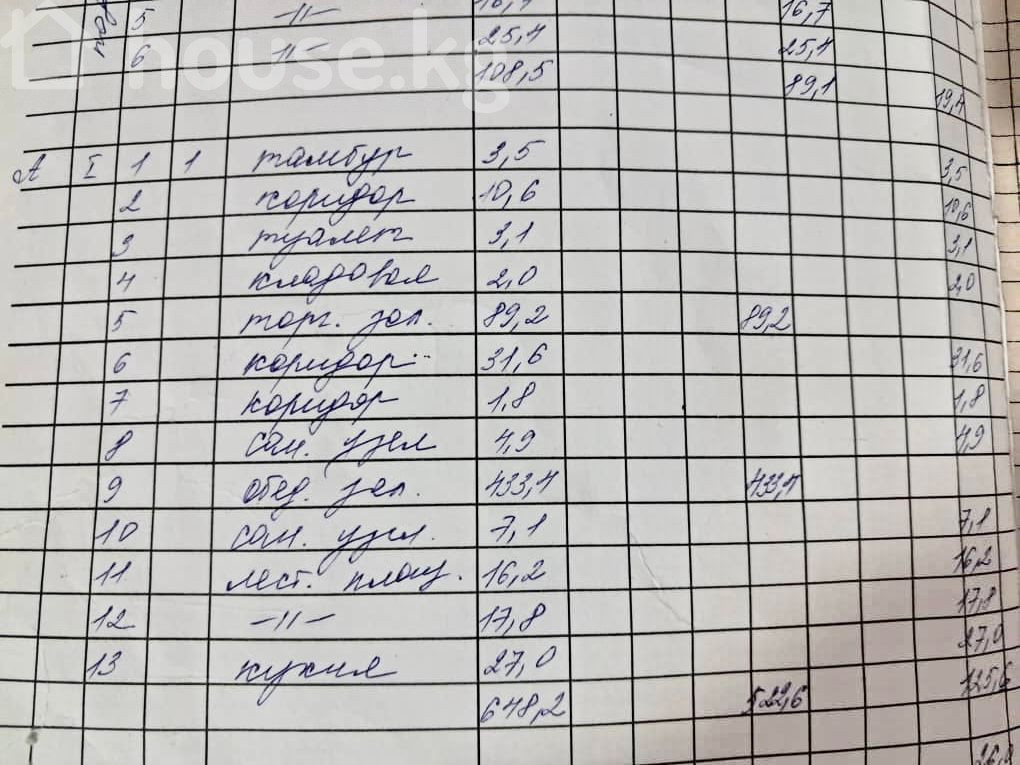 5 -11- 16,7 16,7
6 -11- 25,4 25,4
108,5 89,1 19,4
house.kg
А I 1 1 тамбур 3,5 3,5
2 коридор 10,6 10,6
3 туалет 3,1 3,1
4 кладовая 2,0 2,0
5 торг. зал. 89,2 89,2
6 коридор 31,6 31,6
7 коридор 1,8 1,8
8 сан. узел 4,9 4,9
9 обед. зал. 433,4 433,4
10 сан. узел. 7,1 7,1
11 лест. площ. 16,2 16,2
12 -11- 17,8 17,8
13 кухня 27,0 27,0
648,2 522,6 125,6